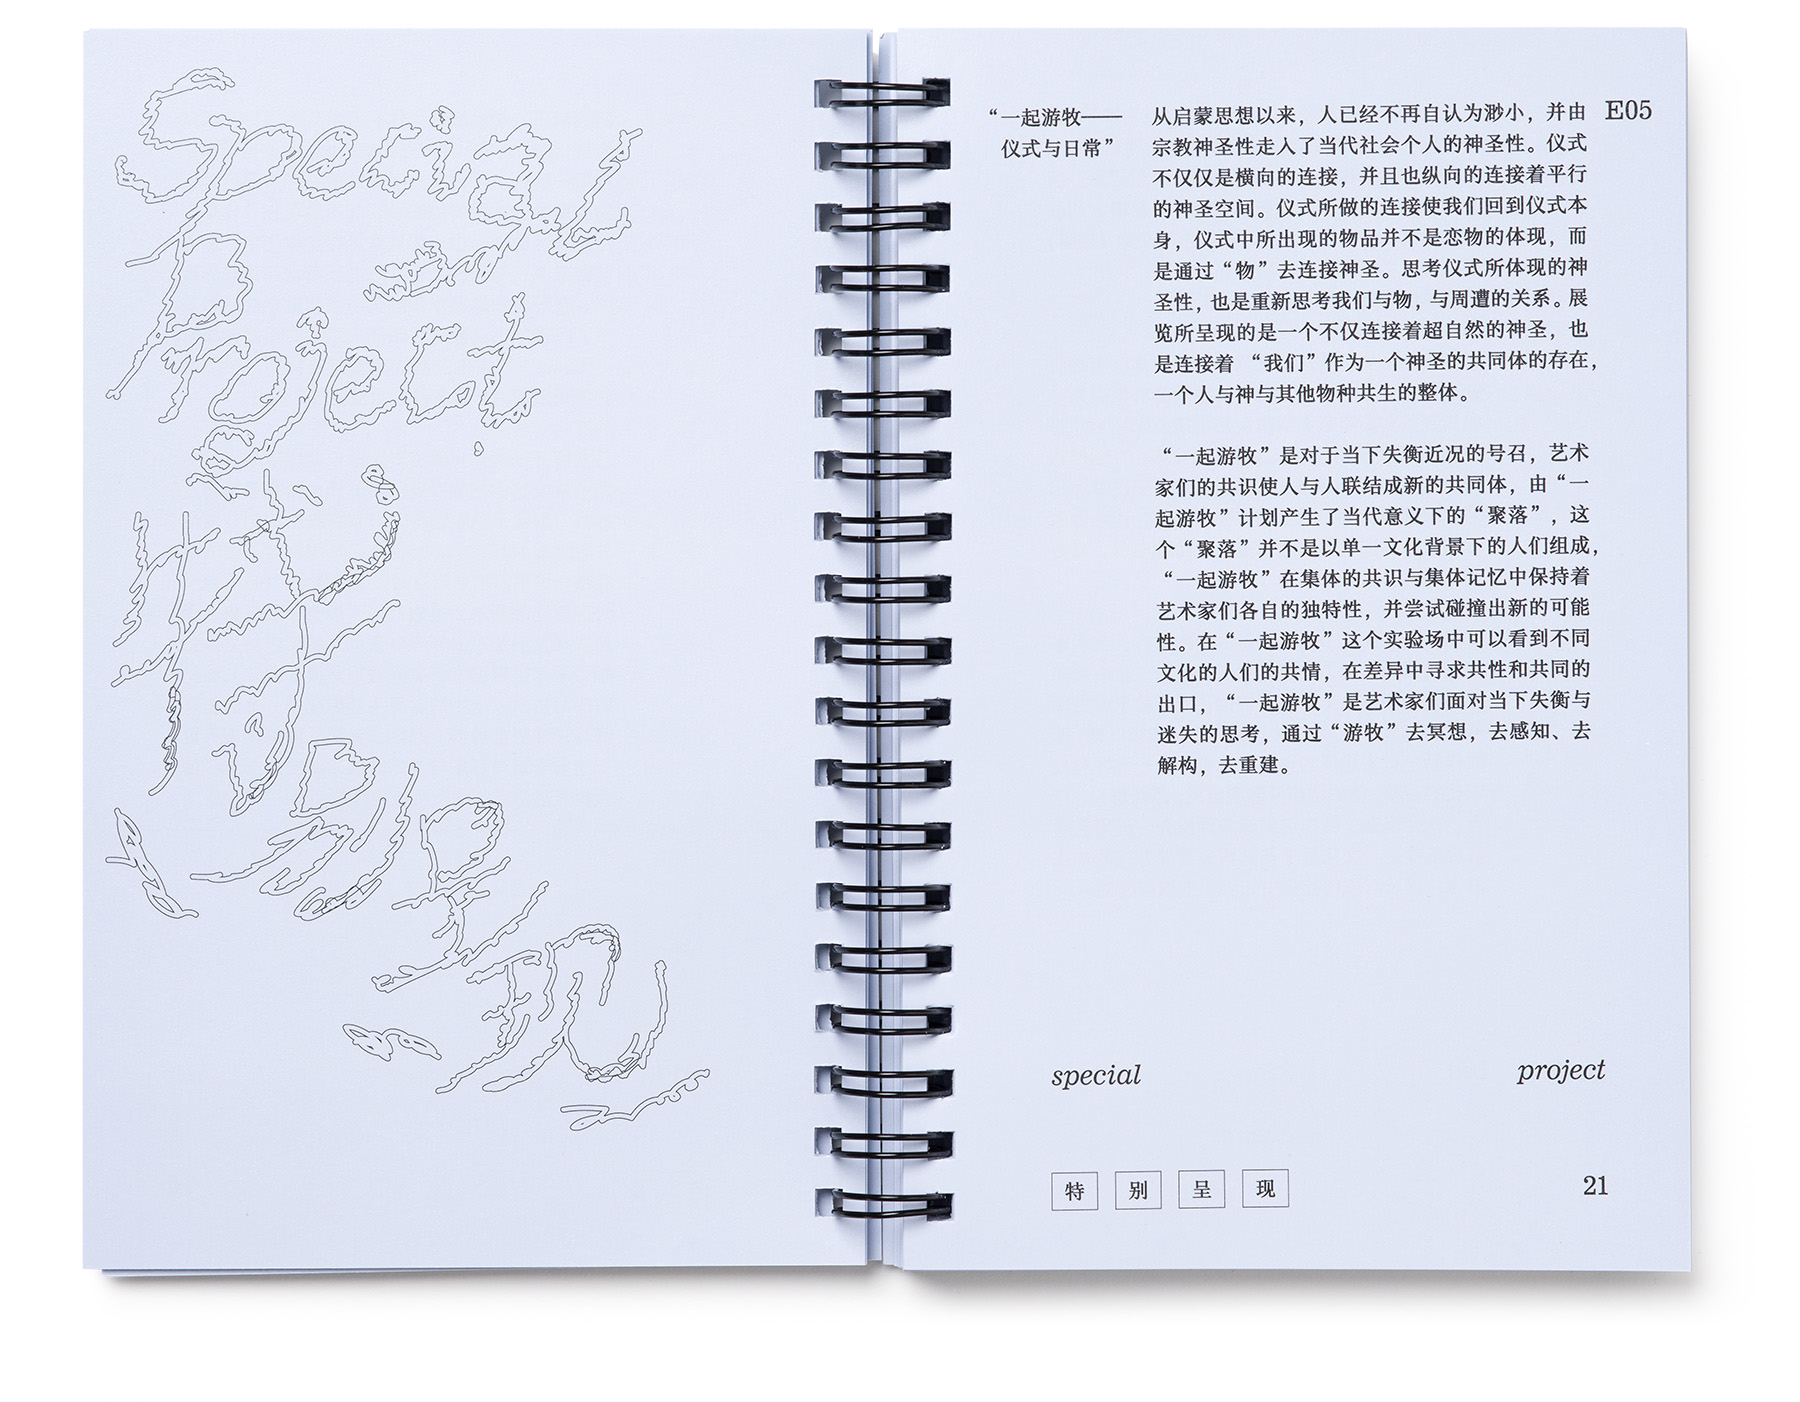 Special
Project
特别呈现
“一起游牧——
仪式与日常”
从启蒙思想以来，人已经不再自认为渺小，并由
宗教神圣性走入了当代社会个人的神圣性。仪式
不仅仅是横向的连接，并且也纵向的连接着平行
的神圣空间。仪式所做的连接使我们回到仪式本
身，仪式中所出现的物品并不是恋物的体现，而
是通过“物”去连接神圣。思考仪式所体现的神
圣性，也是重新思考我们与物，与周遭的关系。展
览所呈现的是一个不仅连接着超自然的神圣，也
是连接着 “我们”作为一个神圣的共同体的存在，
一个人与神与其他物种共生的整体。
“一起游牧”是对于当下失衡近况的号召，艺术
家们的共识使人与人联结成新的共同体，由“一
起游牧”计划产生了当代意义下的“聚落”，这
个“聚落”并不是以单一文化背景下的人们组成，
“一起游牧”在集体的共识与集体记忆中保持着
艺术家们各自的独特性，并尝试碰撞出新的可能
性。在“一起游牧”这个实验场中可以看到不同
文化的人们的共情，在差异中寻求共性和共同的
出口，“一起游牧”是艺术家们面对当下失衡与
迷失的思考，通过“游牧”去冥想，去感知、去
解构，去重建。
E05
special
project
特别呈现
21